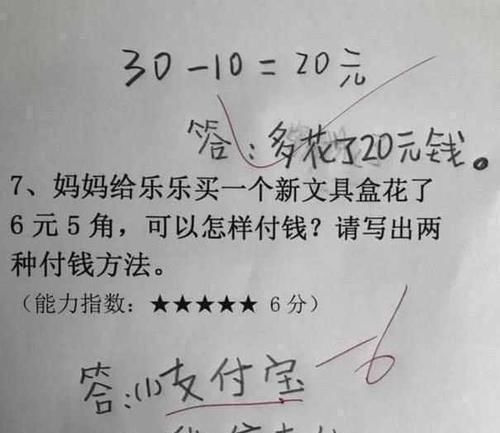 30-10=20元
答:多花了20元钱。
7、妈妈给乐乐买一个新文具盒花了
6元5角，可以怎样付钱？请写出两
种付钱方法。
（能力指数：★★★★★ 6分）
-6
答:(1)支付宝